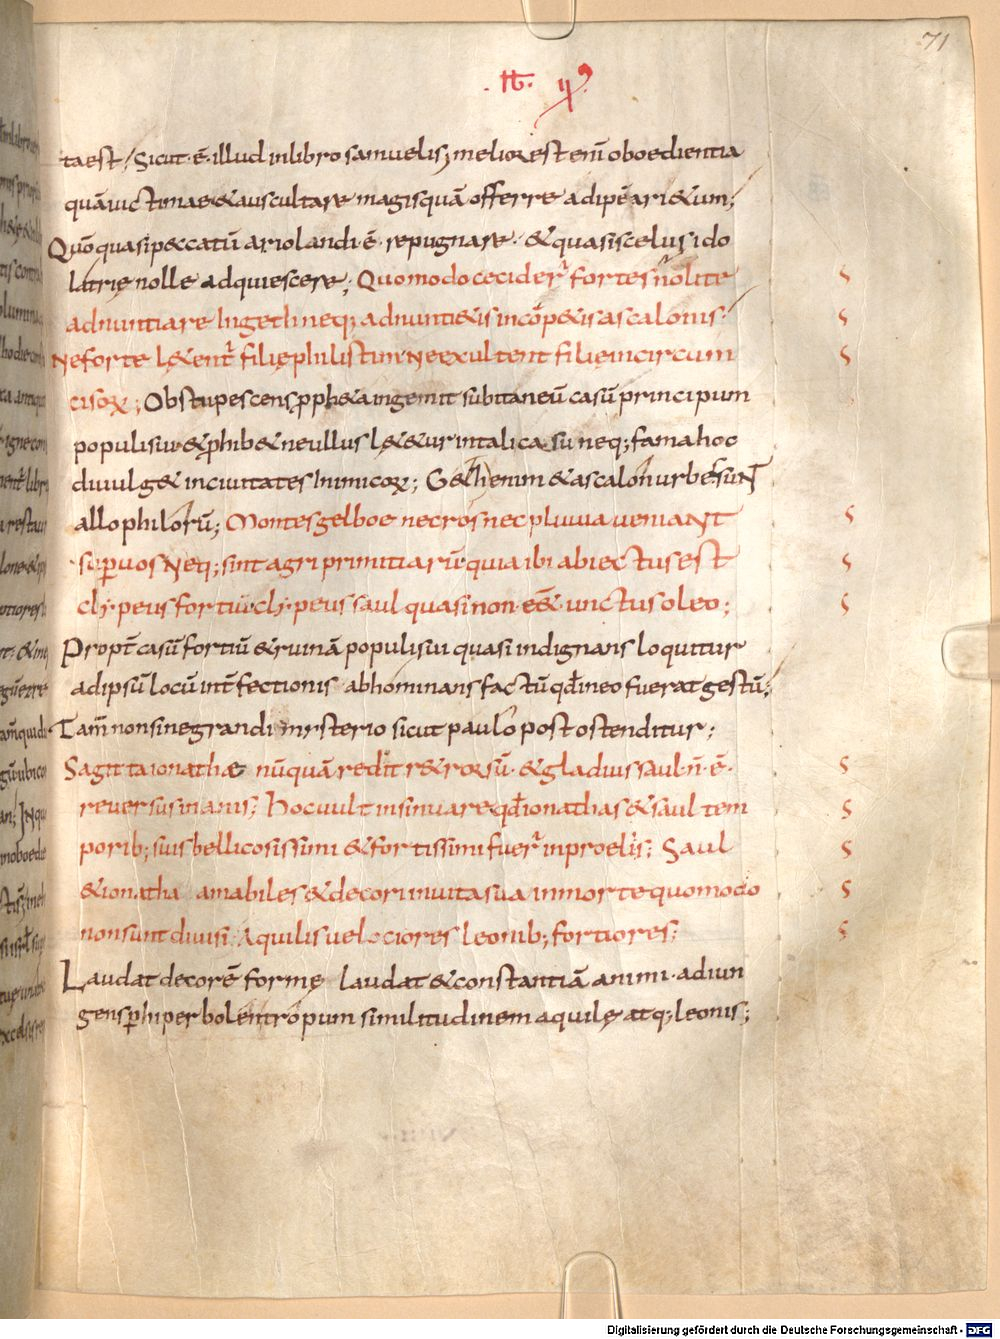 71
ta est / Sicut · ē · illud in libro samuelis; melior est eni̅ oboedientia
quā uictimae & auscultare magis quā offerre adipē ari&um;
Quō quasi p&catū ariolandi · ē · repugnare · & quasi scelus ido
latrię nolle adquiescere; Quomodo cecider̄ fortes nolite
adnuntiare in geth neq; adnunti&is in cōp&is ascalonis;
Ne forte l&ent̄ filię philistim Ne exultent filię incircum
cisoꝝ; Obstupescens pph&a ingemit subitaneū casū principum
populi sui & phib& ne ullus l&&ur in tali casu neq; fama hoc
diuulg& in ciuitates inimicoꝝ; G&h enim & ascalon urbes sunt
allophiloꝝū; Montes gelboe nec ros nec pluuia ueniant
sup uos Neq; sint agri primitiarū quia ibi abiectus est
clypeus fortiū clypeus saul quasi non · eē& · unctus oleo;
Propt̄ casū fortiū & ruinā populi sui quasi indignans loquitur
ad ipsū locū int̄fectionis abhominans factū qd̄ in eo fuerat gestū;
Tam̄ non sine grandi mysterio sicut paulo post ostenditur;
Sagitta ionathæ nūquā redīt r&rorsū · & gladius saul · n̄ · ē ·
reuersus inanis; Hoc uult insinuare qd̄ ionathas & saul tem
porib; suis bellicosissimi & fortissimi fuer̄ in proeliis; Saul
& ionatha amabiles & decori in uita sua in morte quomodo
non sunt diuisi; Aquilis uelociores leonib; fortiores;
Laudat decorē formę laudat & constantiā animi · adiun
gens phiperbolen tropum similitudinem aquilę atq; leonis;
Digitalisierung gefördert durch die Deutsche Forschungsgemeinschaft - DFG